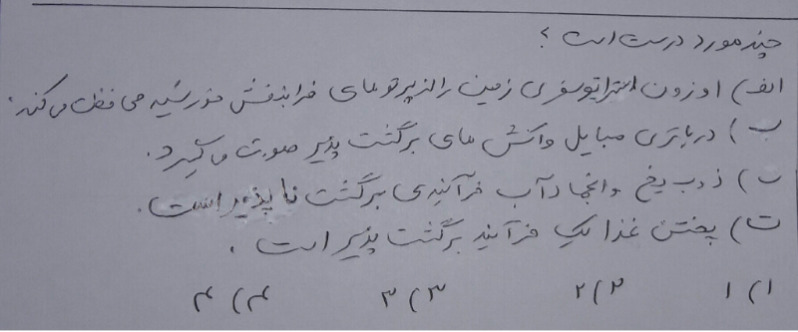 چند مورد درست است ؟
الف) اوزون استراتوسفری زمین را از پرتوهای فرابنفش خورشید محافظت می‌کند.
ب) در باتری مبایل واکنش های برگشت پذیر صورت می‌گیرد.
پ) ذوب یخ و انجماد آب فرآیندی برگشت ناپذیر است.
ت) پختن غذا یک فرآیند برگشت پذیر است .
۱) ۱ ۲) ۲ ۳) ۳ ۴) ۴